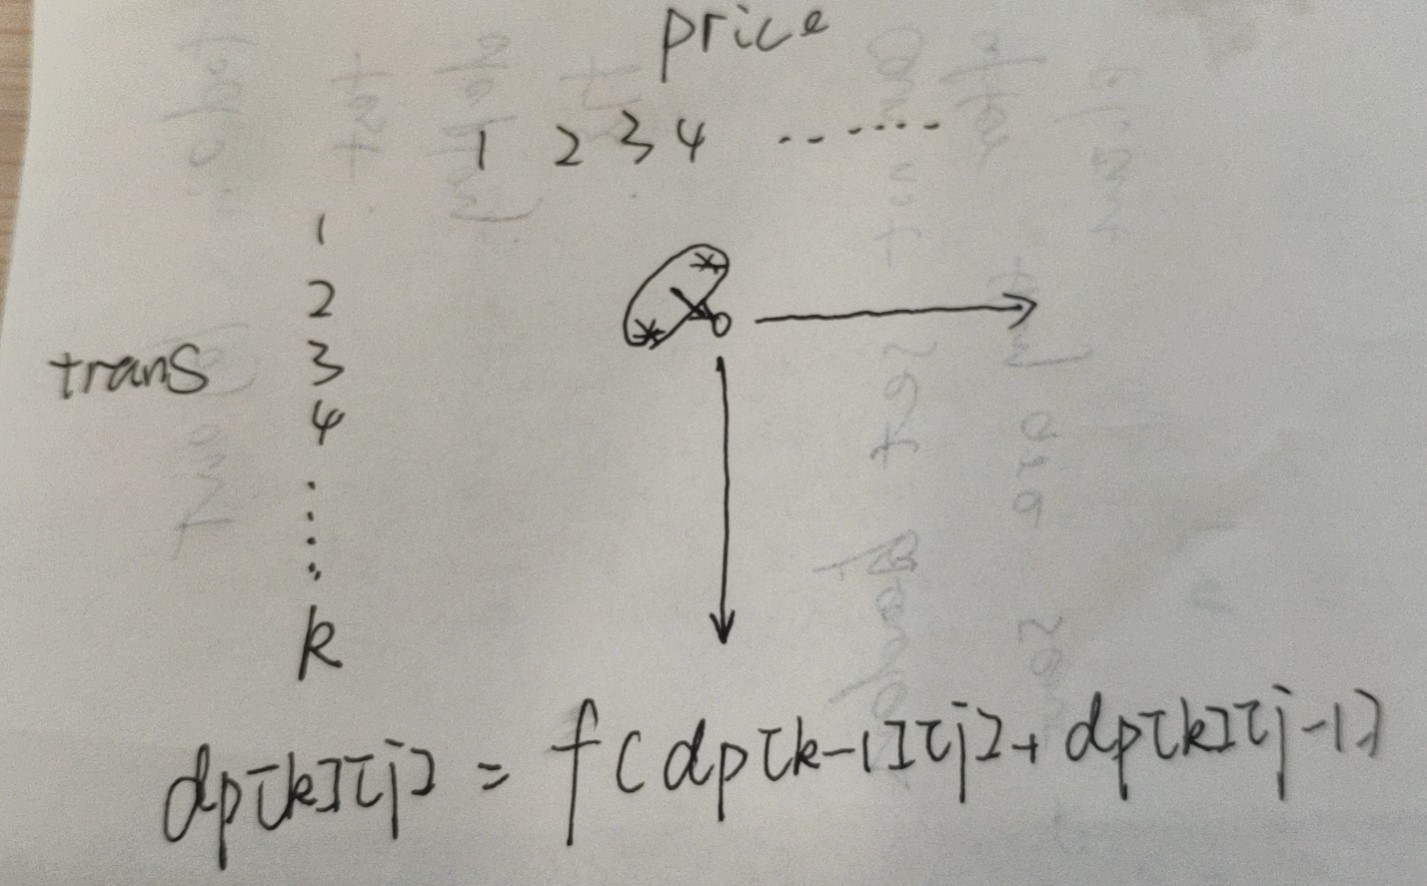 price
1 2 3 4 .......
1
2
trans 3
4
.
.
.
.
k
dp[k][j] = f(dp[k-1][j]+dp[k][j-1]